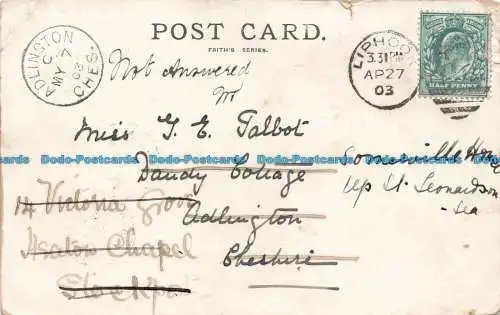 POST CARD.
FAITH'S SERIES.
ADLINGTON
C
MY 7
03
CHES.
LIPHOOK
3.31PM
AP27
03
HALF PENNY
Not Answered
Miss G. E. Talbot
Dodo-Postcards Dodo-Postcards Dodo-Postcards Dodo-Postcards Dodo-Postcards
Dandy Cottage
Adlington
Cheshire
Up St. Leonards on
Sea
14 Victoria Grove
Heaton Chapel
Stockport